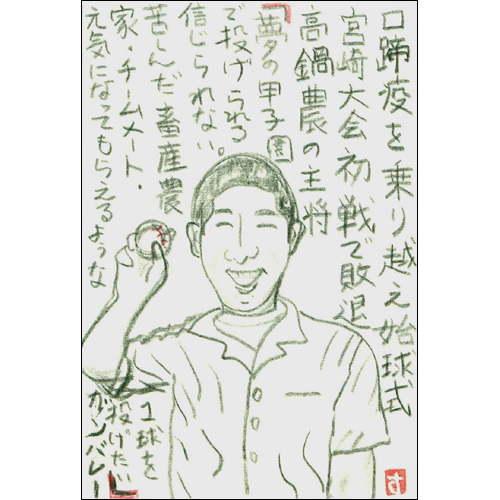 口蹄疫を乗り越え始球式
宮崎大会初戦で敗退
高鍋農の主将
「夢の甲子園
で投げられる
信じられない。
苦しんだ畜産農
家・チームメート・
元気になってもらえるような
1球を
投げたい」
ガンバレー
す